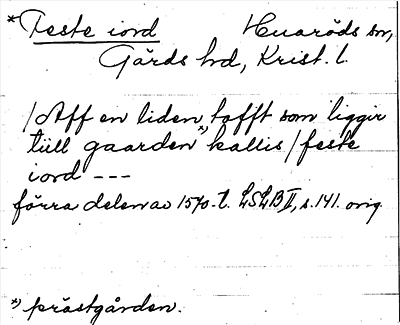 *Feste iord Huaröds sn,
Gärds hd, Krist. l.
/Aff en liden tofft som liggir
tiill gaarden *) kallis / feste
iord ---
förra delen av 1570-t. LSLB II, s. 141. orig.
*) prästgården.